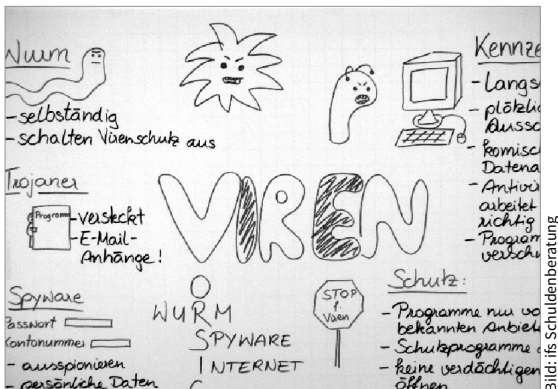 Wurm
- selbständig
- schalten Virenschutz aus
Trojaner
Programm
- versteckt
- E-Mail-
Anhänge!
Spyware
Passwort
Kontonummer
- ausspionieren
- persönliche Daten
VIREN
O
WURM
SPYWARE
INTERNET
STOP
f.
Viren
Kennze
- Langs
- plötzlic
Aussc
- komisc
Datena
- Antivir
arbeitet
richtig
- Program
verschw
Schutz:
- Programme nur vo
bekannten Anbiet
- Schutzprogramme
- keine verdächtigen
öffnen
Bild: ifs Schuldenberatung